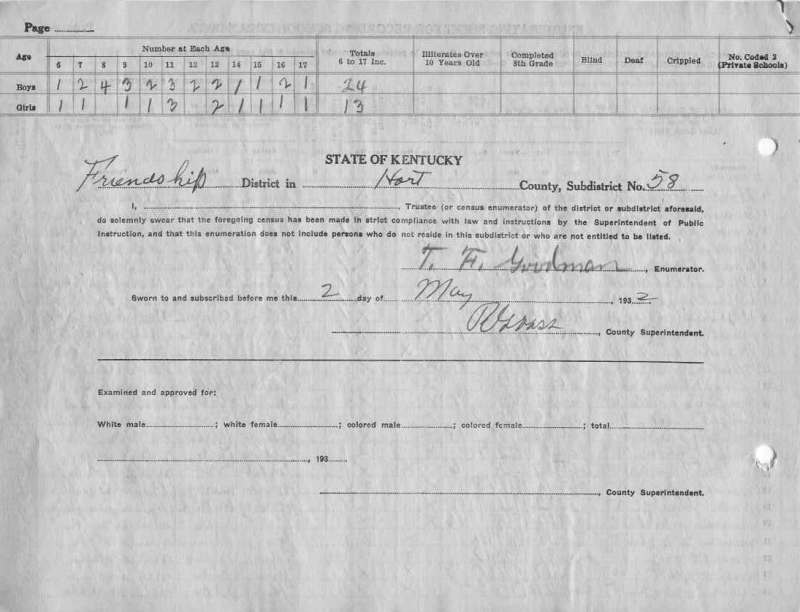 Page
Age Number at Each Age Totals 6 to 17 Inc. Illiterates Over 10 Years Old Completed 8th Grade Blind Deaf Crippled No. Coded 2 (Private Schools)
6 7 8 9 10 11 12 13 14 15 16 17
Boys 1 2 4 3 2 3 2 2 1 1 2 1 24
Girls 1 1 1 1 3 2 1 1 1 1 13
STATE OF KENTUCKY
Friendship District in Hart County, Subdistrict No. 58
I, , Trustee (or census enumerator) of the district or subdistrict aforesaid,
do solemnly swear that the foregoing census has been made in strict compliance with law and instructions by the Superintendent of Public
Instruction, and that this enumeration does not include persons who do not reside in this subdistrict or who are not entitled to be listed.
T. F. Goodman, Enumerator.
Sworn to and subscribed before me this 2 day of May, 1932
, County Superintendent.
Examined and approved for:
White male ; white female ; colored male ; colored female ; total
, 193
, County Superintendent.